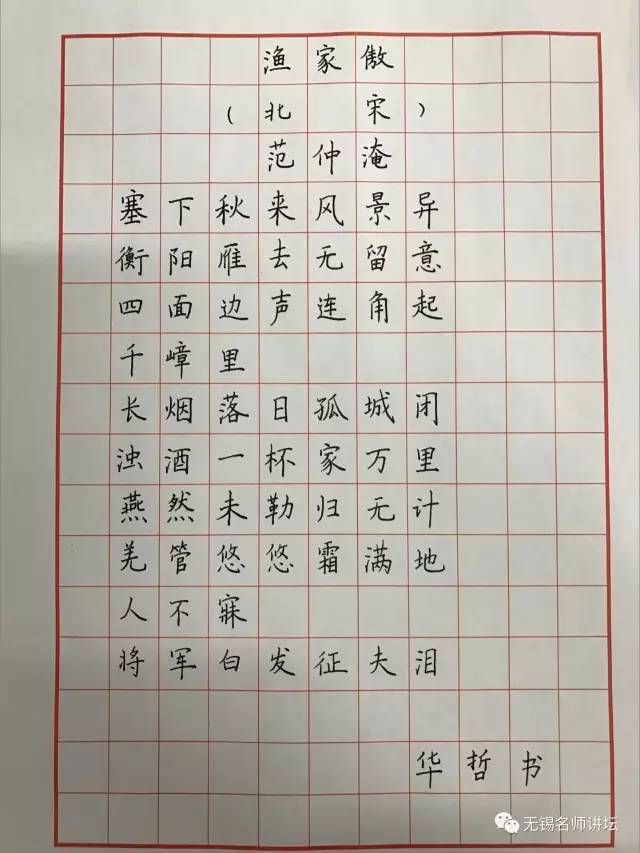 渔家傲
（北 宋）
范仲淹
塞下秋来风景异
衡阳雁去无留意
四面边声连角起
千嶂里
长烟落日孤城闭
浊酒一杯家万里
燕然未勒归无计
羌管悠悠霜满地
人不寐
将军白发征夫泪
华哲书
无锡名师讲坛